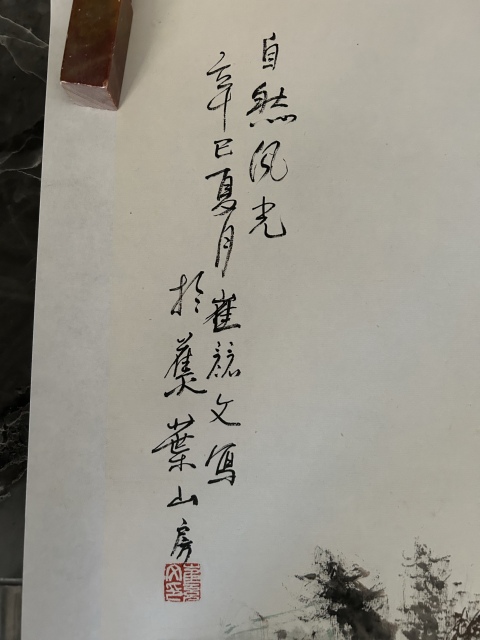 自然风光
辛巳夏月崔懿文写
於蕉葉山房